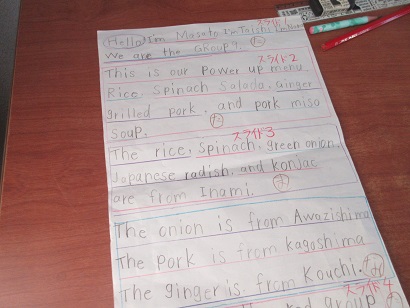 スライド
Hello! I'm Masato I'm Taishi
We are the Group 9. た
スライド2
This is our Power up menu
Rice, Spinach Salada, Ginger
grilled pork, and pork miso
soup. た
スライド3
The rice, Spinach, green onion,
Japanese radish, and konjac
are from Inami. ま
The onion is from Awazishima
The pork is from kagoshima
The ginger is from Kouchi.
スライド4
red group